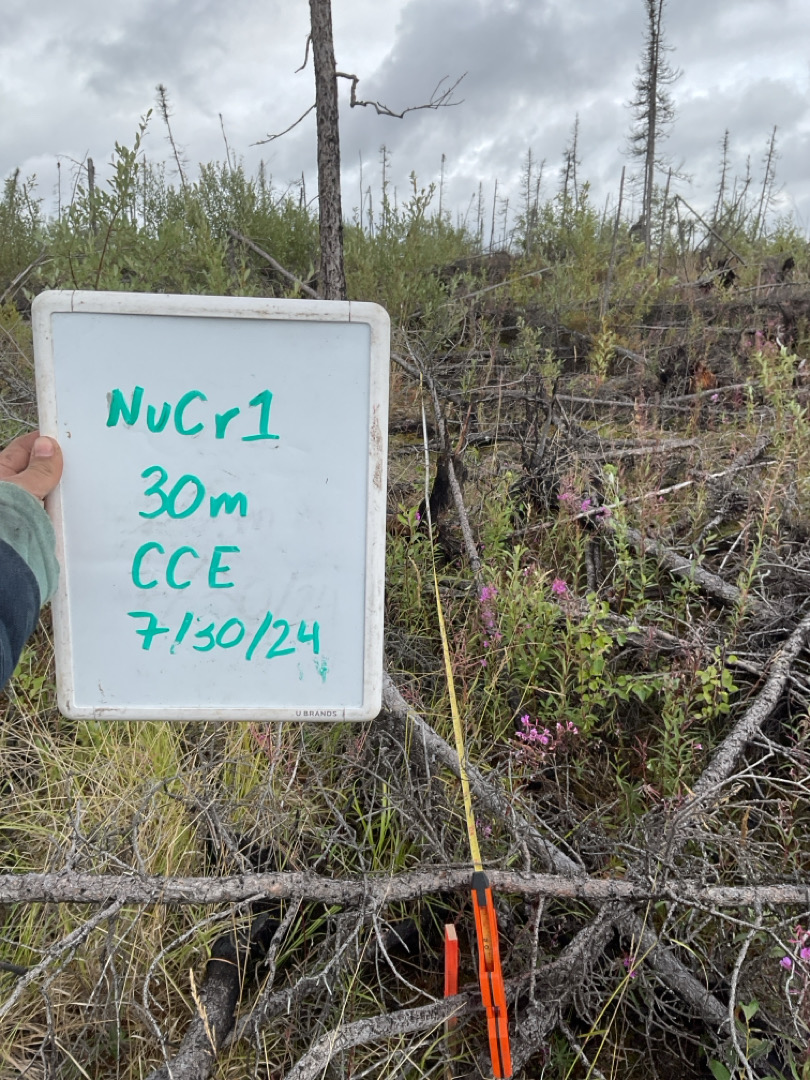 NuCr1
30m
CCE
7/30/24
U BRANDS